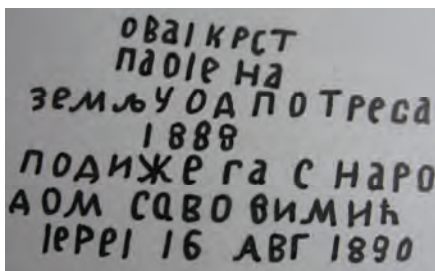 оваı крст
паоıе на
земљу од потреса
1888
подиже га с наро
дом саво вимић
ıереı 16 авг 1890